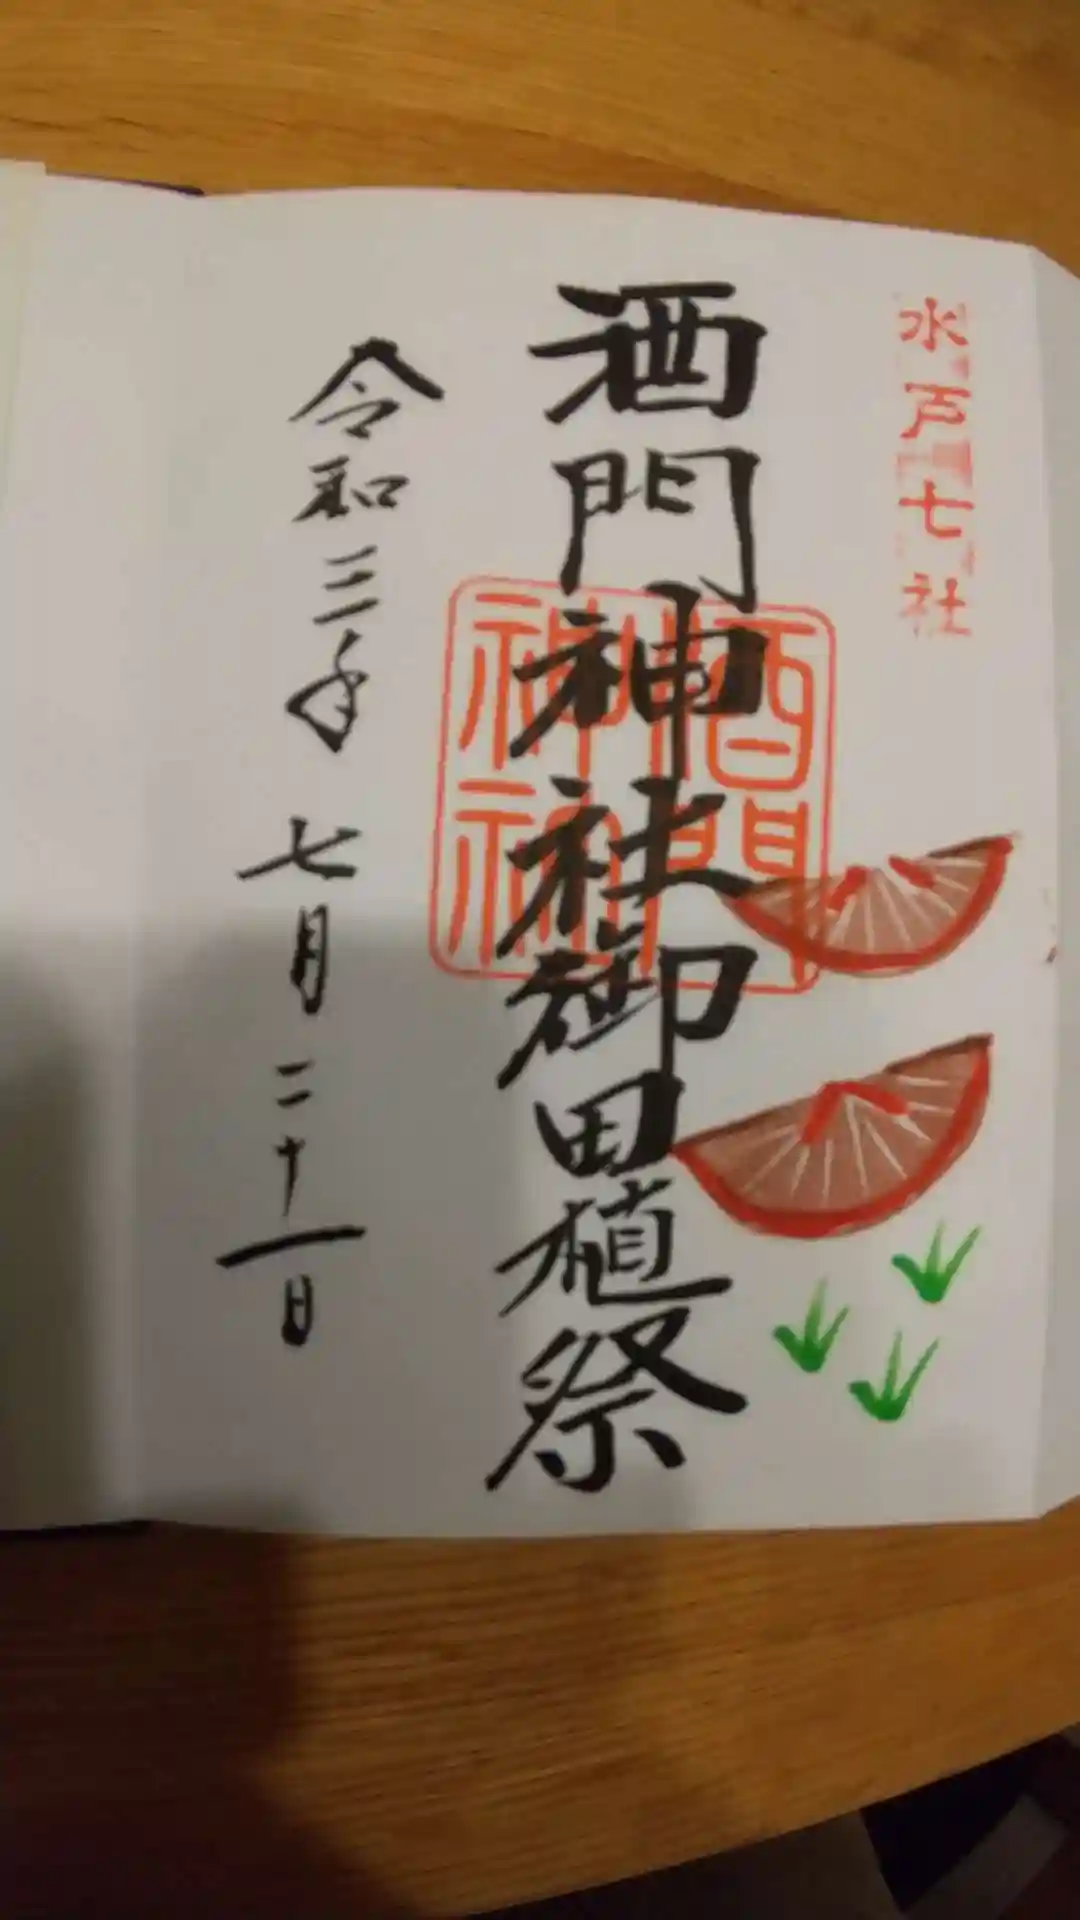 水戸七社
酒門神社御田植祭
酒門
神社
令和三年七月二十一日